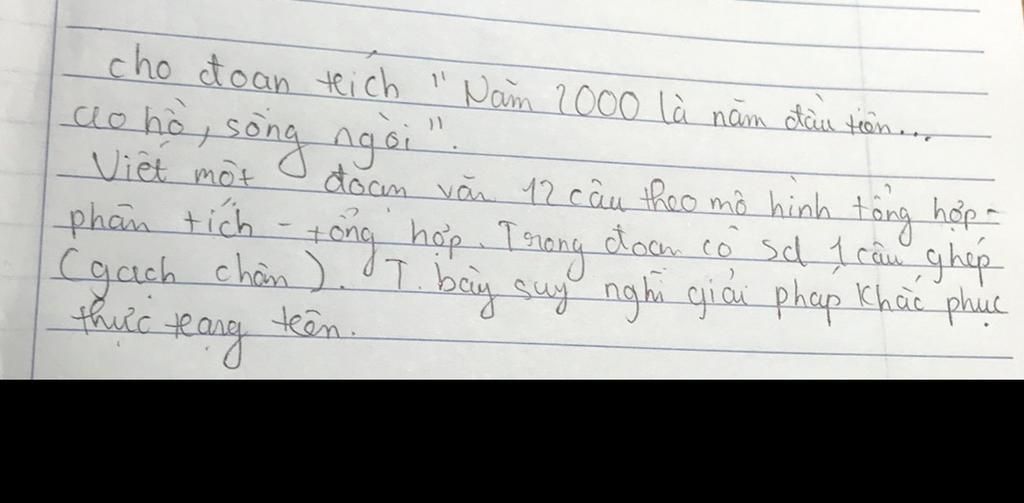 cho đoan trích "Năm 2000 là năm đầu tiên...
ao hồ, sông ngòi".
Viết một đoan văn 12 câu theo mô hình tổng hợp -
phân tích - tổng hợp. Trong đoan có sd 1 câu ghép
(gạch chân). T. bày suy nghĩ giải pháp khắc phục
thực trạng trên.